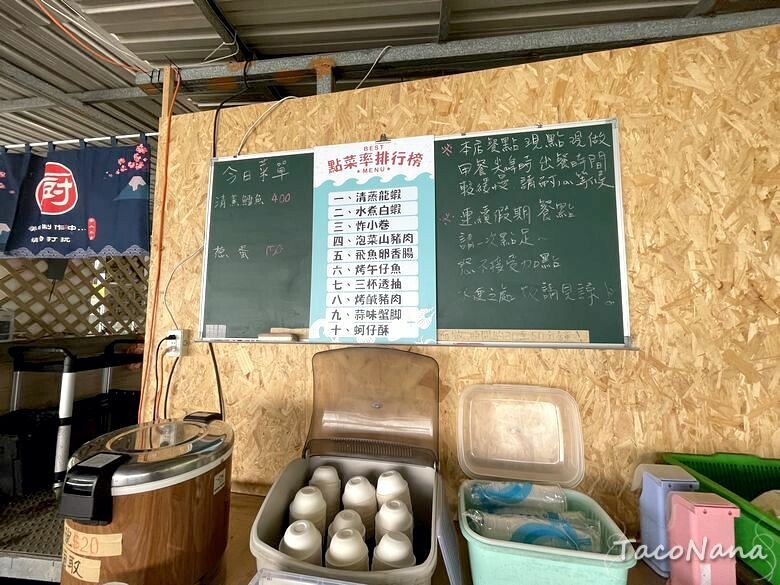 廚
今日菜單
清蒸鱈魚 400
蔥蛋 150
BEST
點菜率排行榜
MENU
一、清蒸龍蝦
二、水煮白蝦
三、炸小卷
四、泡菜山豬肉
五、飛魚卵香腸
六、烤午仔魚
七、三杯透抽
八、烤鹹豬肉
九、蒜味蟹脚
十、蚵仔酥
※ 本店餐點現點現做
用餐尖峰時出餐時間
較緩慢 請耐心等侯
※ 連續假期餐點
請一次點足~
恕不接受加點
不便之處 敬請見諒
$20
取
TacoNana